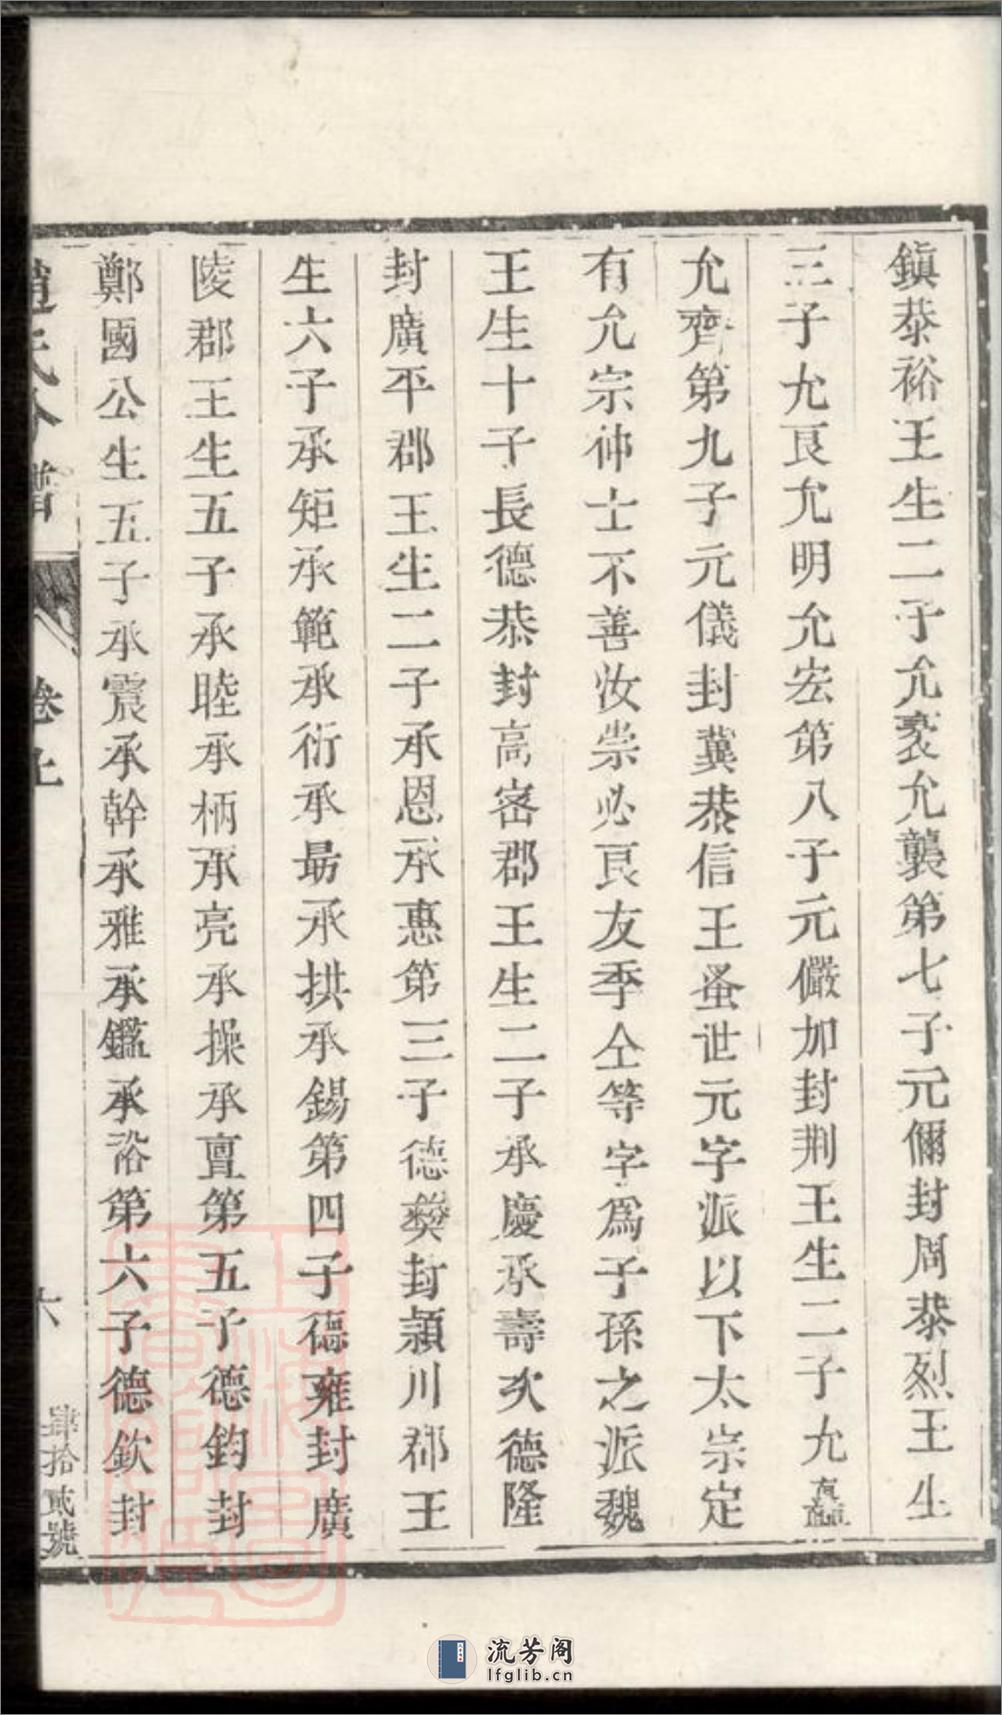 鎭恭裕王生二子允袤允襲第七子元儞封周恭烈王生
三子允艮允明允宏第八子元儼加封荆王生二子允
允齊第九子元儀封冀恭信王蚤世元字派以下太宗定
有允宗仲士不善汝崇必艮友季仝等字爲子孫之派魏
王生十子長德恭封高宻郡王生二子承慶承壽次德隆
封廣平郡王生二子承恩承惠第三子德彝封潁川郡王
生六子承矩承範承衍承勗承拱承錫第四子德雍封廣
陵郡王生五子承睦承柄承亮承操承亶第五子德鈞封
鄭國公生五子承震承幹承雅承鑑承裕第六子德欽封
趙氏分譜
卷上
六
肆拾貳號
流芳阁
lfglib.cn